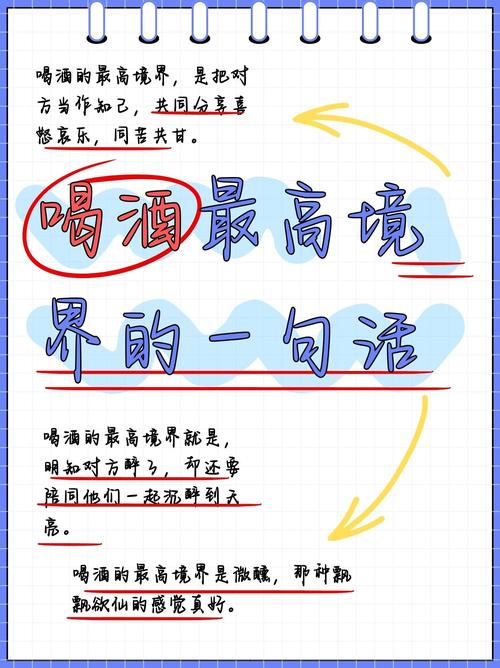 喝酒的最高境界，是把对
方当作知己，共同分享喜
怒哀乐，同苦共甘。
喝酒最高境
界的一句话
喝酒的最高境界就是，
明知对方醉了，却还要
陪同他们一起沉醉到天
亮。
喝酒的最高境界是微醺，那种飘
飘欲仙的感觉真好。